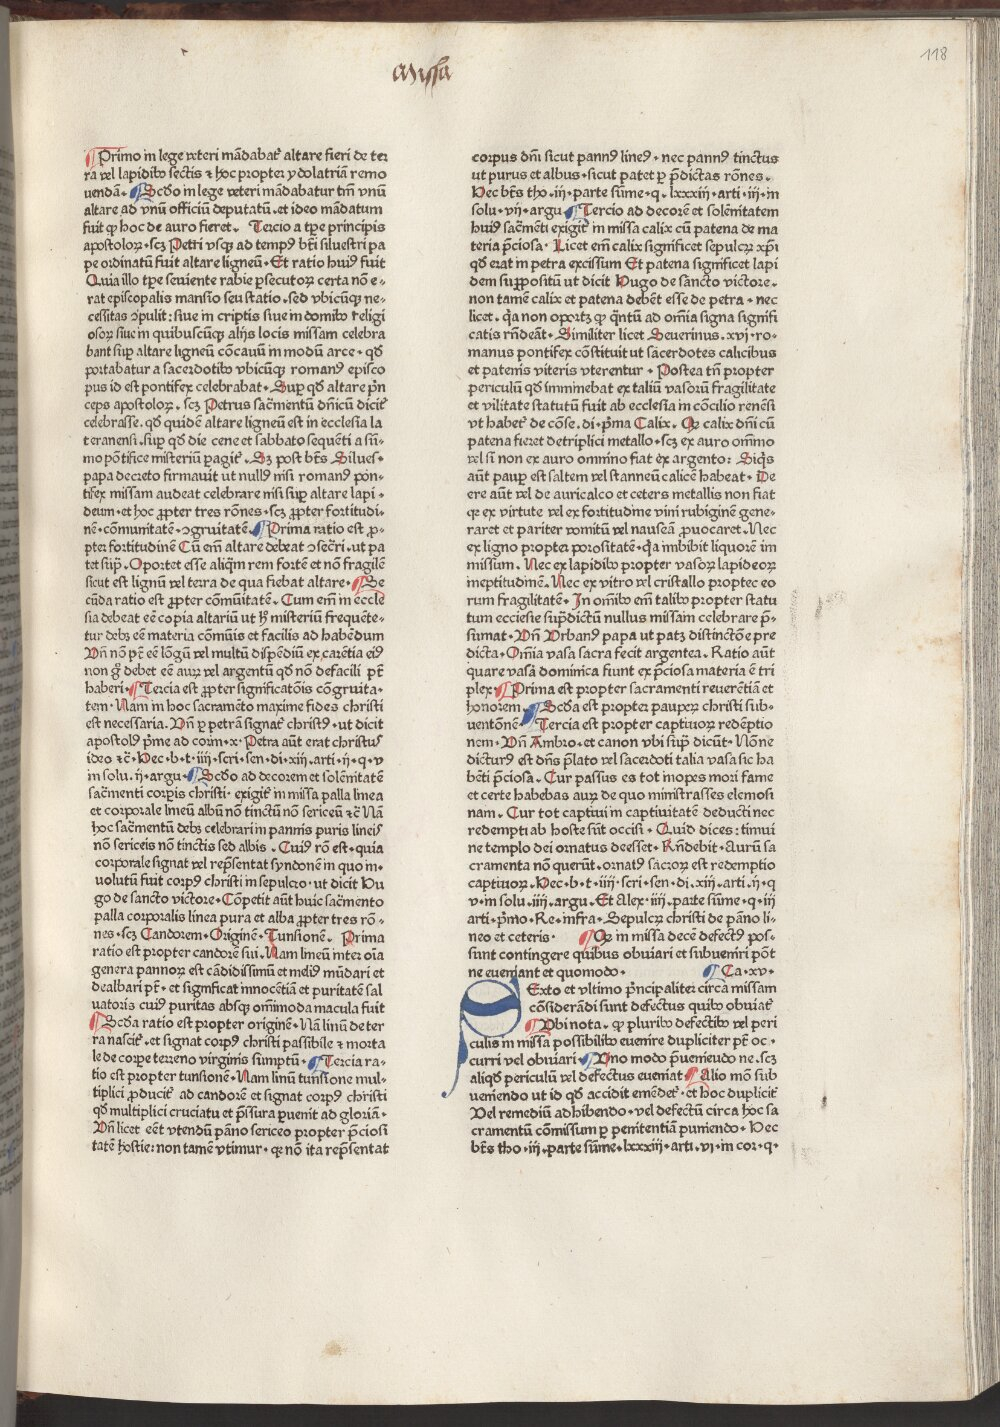 Missa
118
Primo in lege veteri mādabat᷑ altare fieri de ter
ra vel lapidibꝰ sectis ⁊ hoc propter ydolatriā remo
uendā. Scďo in lege veteri mādabatur tm̄ vnū
altare ad vnū officiū deputatū. et ideo mādatum
fuit ꝙ hoc de auro fieret. Tercio a tp̄e principis
apostoloꝝ. scꝫ Petri vsqꝫ ad tempꝰ bt̄i siluestri pa
pe ordinatū fuit altare ligneū. Et ratio huiꝰ fuit
Quia illo tp̄e seuiente rabie ꝑsecutoꝝ certa nō e-
rat episcopalis mansio seu statio. sed vbicūqꝫ ne-
cessitas ꝯpulit: siue in criptis siue in domibꝰ religi
osoꝝ siue in quibuscūqꝫ alijs locis missam celebra
bant suꝑ altare ligneū cōcauū in modū arce. qď
portabatur a sacerdotibꝰ vbicūqꝫ romanꝰ episco
pus id est pontifex celebrabat. Suꝑ qď altare p̄n
ceps apostoloꝝ. scꝫ Petrus sac̄mentū dn̄icū dicit᷑
celebrasse. qď quidē altare ligneū est in ecclesia la
teranensi. suꝑ qď die cene et sabbato sequēti a sū-
mo pōtifice misteriū ꝑagit᷑. Sꝫ post bt̄s Silues-
papa decreto firmauit ut nullꝰ nisi romanꝰ pōn-
tifex missam audeat celebrare nisi suꝑ altare lapi-
deum. et hoc ꝓpter tres rōnes. scꝫ ꝓpter fortitudi-
nē. cōmunitatē. ꝯgruitatē. Prima ratio est ꝓ-
pter fortitudinē Cū em̄ altare debeat ꝯsec̄ri. ut pa
tet suꝑ. Oportet esse aliqm̄ rem fortē et nō fragilē
sicut est lignū vel terra de qua fiebat altare. Se
cūda ratio est ꝓpter cōmūitatē. Cum em̄ in eccle
sia debeat eē copia altariū ut hꝰ misteriū frequēte-
tur debꝫ eē materia cōmūis et facilis ad habēdum
Vn̄ nō pt̄ eē lōgū vel multū dispēdiū ex carētia eiꝰ
non ḡ debet eē auꝝ vel argentū qď nō defacili pt̄
haberi. Tercia est ꝓpter significatōis cōgruita-
tem. Nam in hoc sacramēto maxime fides christi
est necessaria. Vn̄ ꝑ petrā signat᷑ christꝰ. ut dicit
apostolꝰ p̄me ad corin. x. Petra aūt erat christus
ideo ⁊c̄. Hec. b. t. iiij. scri. sen. di. xij. arti. ij. q. v
in solu. ij. argu. Scďo ad decorem et solēnitatē
sac̄menti corꝑis christi. exigit᷑ in missa palla linea
et corporale lineū albū nō tinctū nō sericeū ⁊c̄ Nā
hoc sac̄mentū debꝫ celebrari in pannis puris lineis
nō sericeis nō tinctis sed albis. Cuiꝰ rō est. quia
corporale signat vel rep̄sentat syndonē in quo in-
uolutū fuit corpꝰ christi in sepulcro. ut dicit Hu
go de sancto victore. Cōpetit aūt huic sac̄mento
palla corporalis linea pura et alba ꝓpter tres rō-
nes. scꝫ Candorem. Originē. Tunsionē. Prima
ratio est propter candorē sui. Nam lineū inter oīa
genera pannoꝝ est cādidissimū et meliꝰ mūdari et
dealbari pt̄. et significat innocētiā et puritatē sal
uatoris cuiꝰ puritas absqꝫ om̄imoda macula fuit
Scďa ratio est propter originē. Nā linū de ter
ra nascit᷑. et signat corpꝰ christi passibile ⁊ morta
le de corpe terreno virginis sumptū. Tercia ra-
tio est propter tunsionē. Nam linū tunsione mul-
tiplici ꝓducit᷑ ad candorē et signat corpꝰ christi
qď multiplici cruciatu et p̄ssura ꝑuenit ad gloriā.
Vn̄ licet eēt vtendū pāno sericeo propter p̄ciosi
tatē hostie: non tamē vtimur. qꝛ nō ita rep̄sentat
corpus dn̄i sicut pannꝰ lineꝰ. nec pannꝰ tinctus
ut purus et albus. sicut patet ꝑ p̄dictas rōnes.
Hec bt̄s tho. iij. parte sūme. q. lxxxiij. arti. iij. in
solu. vij. argu. Tercio ad decorē et solēnitatem
huiꝰ sac̄menti exigit᷑ in missa calix cū patena de ma
teria p̄ciosa. Licet em̄ calix significet sepulcꝝ xp̄i
qď erat in petra excissum Et patena significet lapi
dem suꝑpositū ut dicit Hugo de sancto victore.
non tamē calix et patena debēt esse de petra. nec
licet. qꝛ non oportꝫ ꝙ q̄ntū ad om̄ia signa signifi
catis rn̄deāt. Similiter licet Seuerinus. xvi. ro-
manus pontifex cōstituit ut sacerdotes calicibus
et patenis viteris vterentur. Postea tn̄ propter
periculū qď imminebat ex taliū vasorū fragilitate
et vilitate statutū fuit ab ecclesia in cōcilio renēsi
vt habet᷑ de cōse. di. p̄ma Calix. Qꝙ calix dn̄i cū
patena fieret de triplici metallo. scꝫ ex auro om̄imo
vel si non ex auro omnino fiat ex argento: Siqͥs
aūt pauꝑ est saltem vel stanneū calicē habeat. De
ere aūt vel de auricalco et ceteris metallis non fiat
qꝛ ex virtute vel ex fortitudine vini rubiginē gene-
raret et pariter vomitū vel nauseā ꝓuocaret. Nec
ex ligno propter porositatē. qꝛ imbibit liquorē im
missum. Nec ex lapidibꝰ propter vasoꝝ lapideoꝝ
ineptitudinē. Nec ex vitro vel cristallo proptec eo
rum fragilitatē. In om̄ibꝰ em̄ talibꝰ propter statu
tum ecclesie suꝑdictū nullus missam celebrare p̄-
sumat. Vn̄ Vrbanꝰ papa ut patꝫ distinctōe pre
dicta. Om̄ia vasa sacra fecit argentea. Ratio aūt
quare vasa dominica fiunt ex p̄ciosa materia ē tri
plex. Prima est propter sacramenti reuerētiā et
honorem. Scďa est propter pauperꝝ christi sub-
uentōnē Tercia est propter captiuoꝝ redēptio
nem. Vn̄ Ambro. et canon vbi supͣ dicūt. Nōne
dicturꝰ est dn̄s p̄lato vel sacerdoti talia vasa sic ha
bēti p̄ciosa. Cur passus es tot inopes mori fame
et certe habebas auꝝ de quo ministrasses elemosi
nam. Cur tot captiui in captiuitatē deducti nec
redempti ab hoste sūt occisi. Quid dices: timui
ne templo dei ornatus deesset. Rn̄debit. Aurū sa
cramenta nō querūt. ornatꝰ sacroꝝ est redemptio
captiuoꝝ. Hec. b. t. iiij. scri. sen. di. xiij. arti. ij. q
v. in solu. iiij. argu. Et Alex. iiij. parte sūme. q. iij
arti. p̄mo. Re. infra. Sepulcꝝ christi de pāno li-
neo et ceteris. Qꝙ in missa decē defectꝰ pos-
sunt contingere quibus obuiari et subueniri pōt
ne eueniant et quomodo. Ca. xv.
Sexto et vltimo p̄ncipaliter circa missam
cōsiderādi sunt defectus quibꝰ obuiat᷑
Vbi nota. ꝙ pluribꝰ defectibꝰ vel peri
culis in missa possibilibꝰ euenire dupliciter pt̄ oc-
curri vel obuiari. Vno modo p̄ueniendo ne. scꝫ
aliqď periculū vel defectus eueniat Alio mō sub
ueniendo ut id qď accidit emēdet᷑. et hoc duplicit᷑
Vel remediū adhibendo. vel defectū circa hoc sa
cramentū cōmissum ꝑ penitentiā puniendo. Hec
bt̄s tho. iij. parte sūme. lxxxiij. arti. vi. in cor. q.